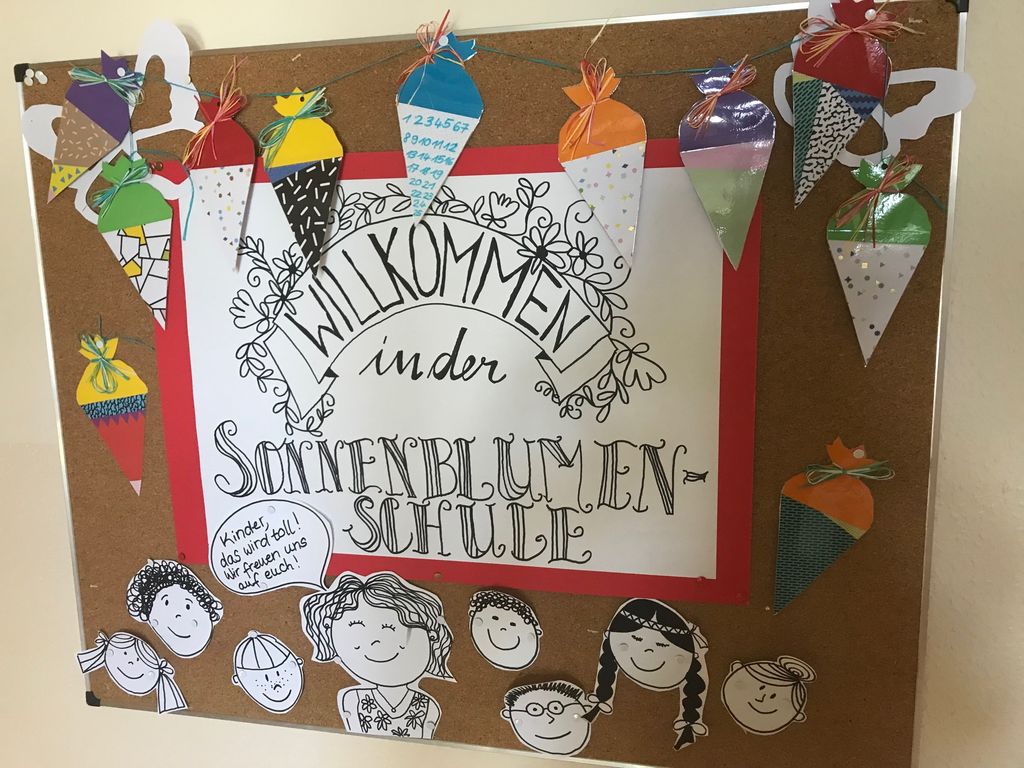 1 2 3 4 5 6 7
8 9 10 11 12
13 14 15 16
17 18 19
20 21
22 23
24
WILLKOMMEN
in der
SONNENBLUMEN-
SCHULE
Kinder,
das wird toll!
Wir freuen uns
auf euch!